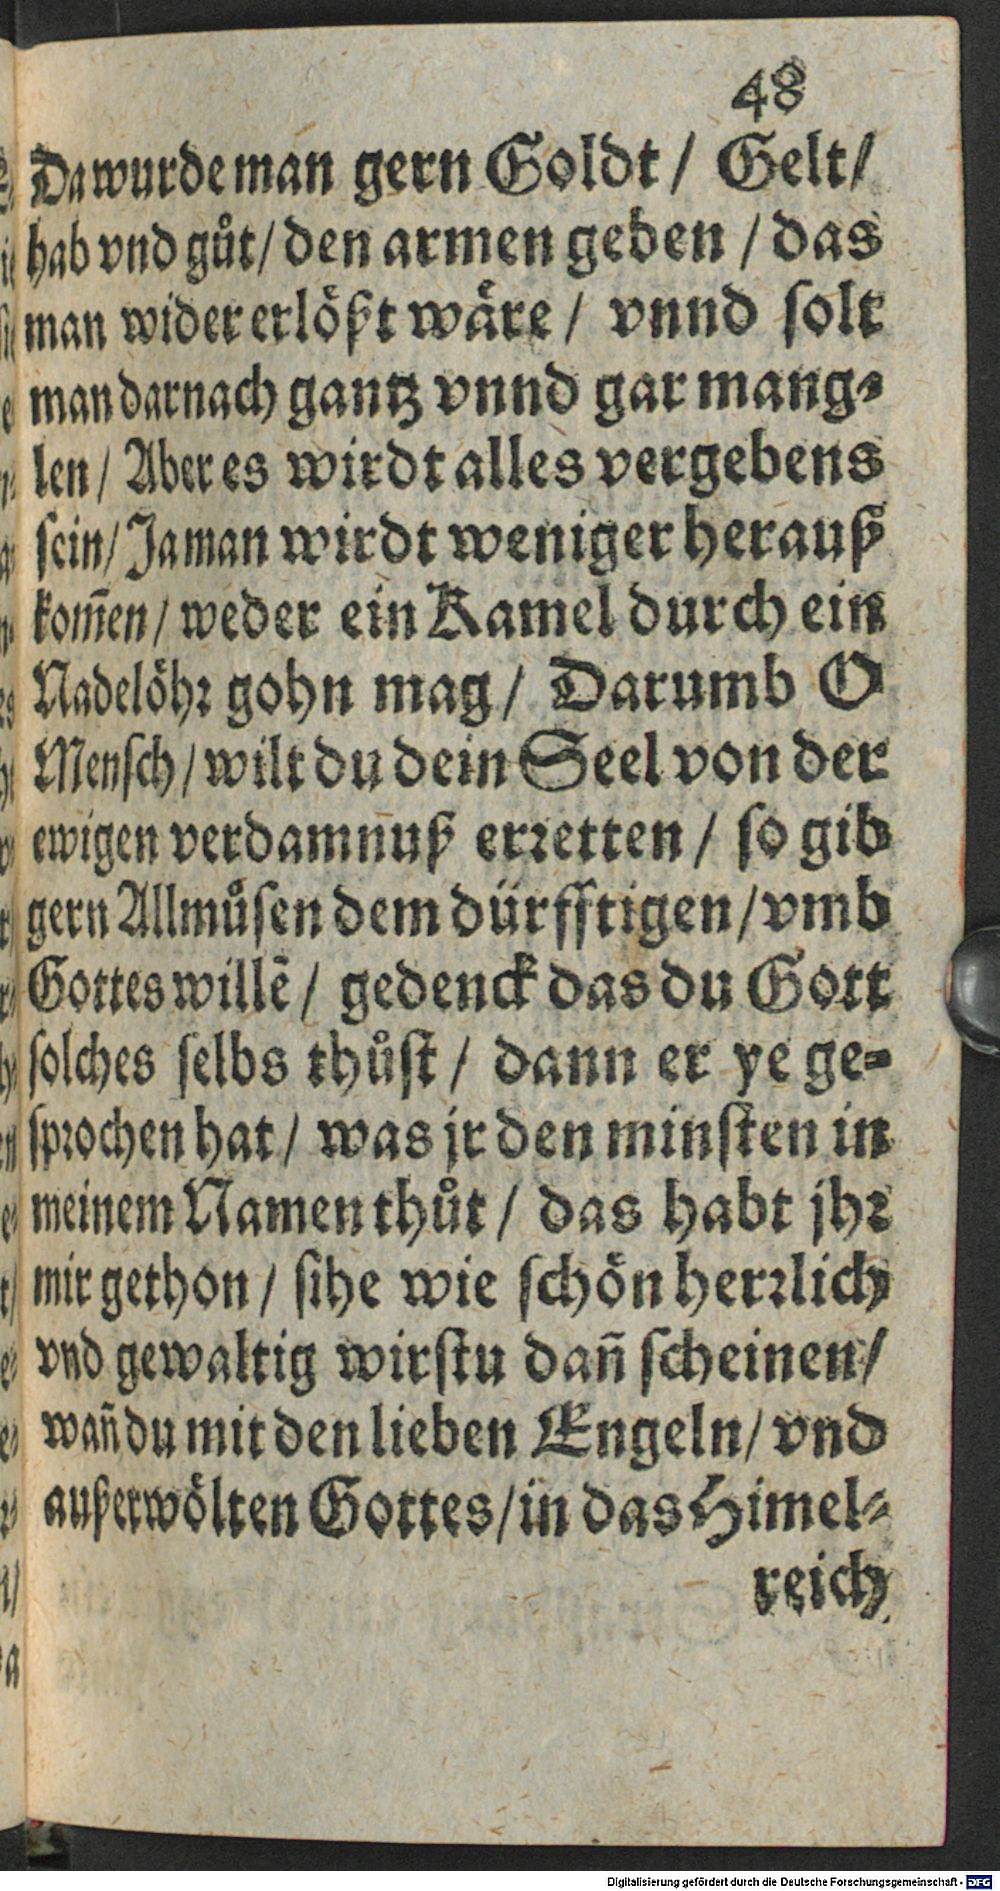 48
Da wurde man gern Goldt / Gelt /
hab vnd gůt / den armen geben / das
man wider erlößt wåre / vnnd solt
man darnach gantz vnnd gar mang-
len / Aber es wirdt alles vergebens
sein / Ja man wirdt weniger herauß
kom̃en / weder ein Kamel durch ein
Nadelöhr gohn mag / Darumb O
Mensch / wilt du dein Seel von der
ewigen verdamnuß erretten / so gib
gern Allmůsen dem dürfftigen / vmb
Gottes willē / gedenck das du Gott
solches selbs thůst / dann er ye ge-
sprochen hat / was jr den minsten in
meinem Namen thůt / das habt jhr
mir gethon / sihe wie schön herrlich
vnd gewaltig wirstu dañ scheinen /
wañ du mit den lieben Engeln / vnd
außerwölten Gottes / in das Himel-
reich
Digitalisierung gefördert durch die Deutsche Forschungsgemeinschaft - DFG